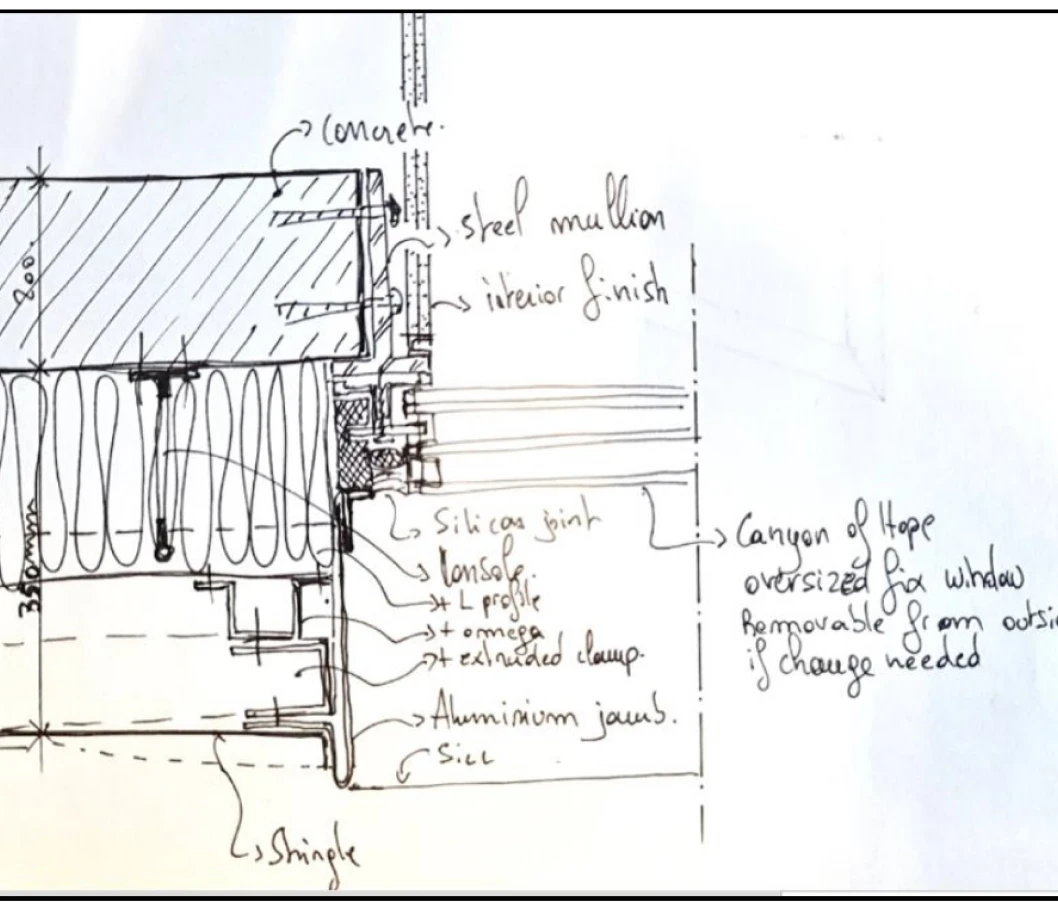 Concrete.
steel mullion
interior finish
200.
350mm
Silicon joint
Console.
+ L profile
+ omega
+ extruded clamp.
Aluminium jamb.
Sill
Shingle
Canyon of Hope
oversized fix window
Removable from outsi
if change needed